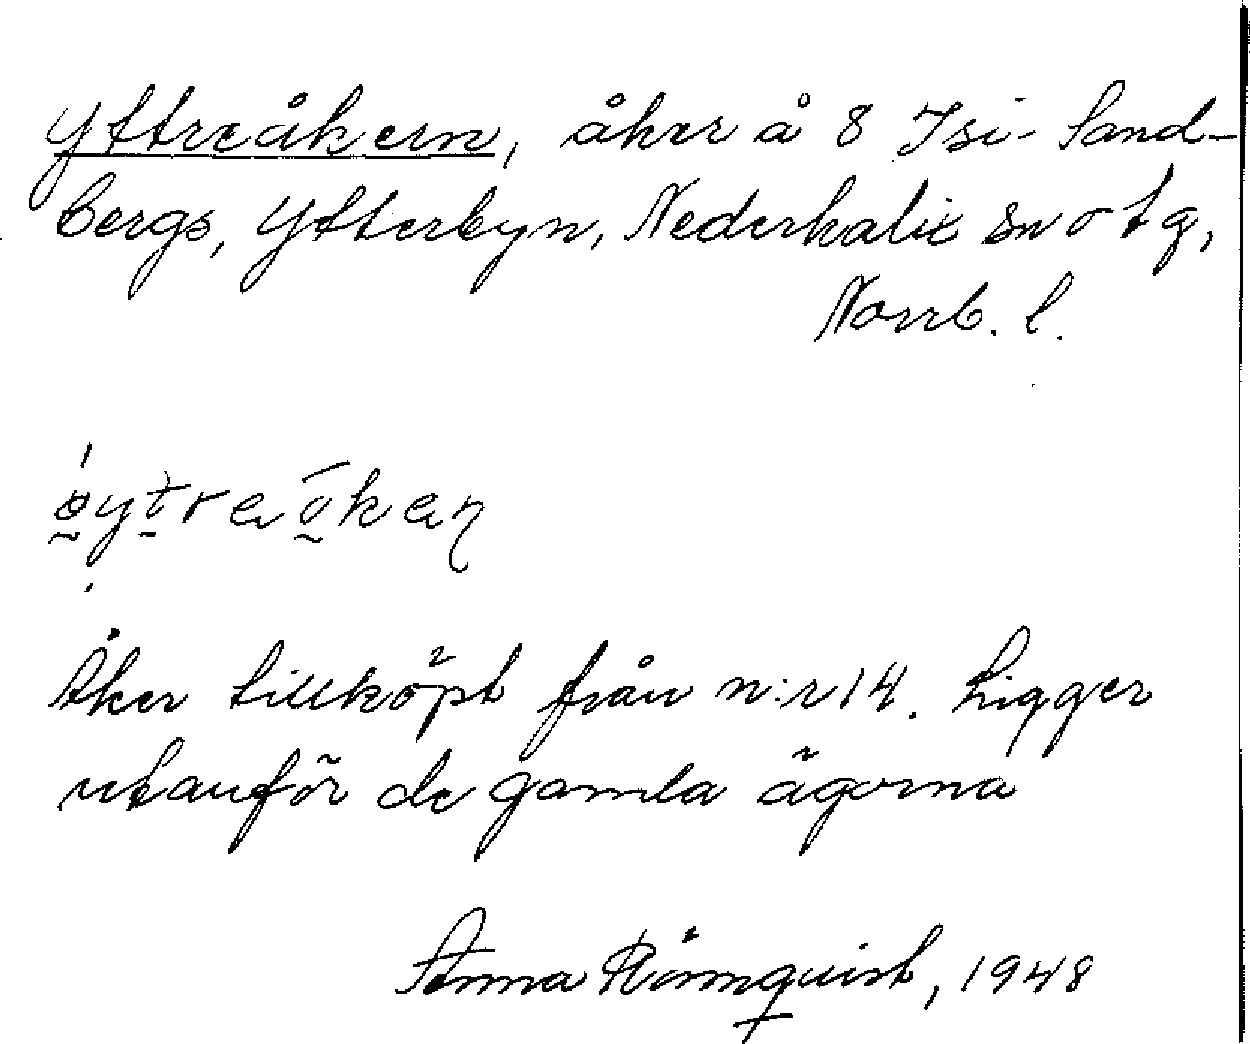 Yttreåkern, åker å 8 Isi- Sand-
bergs, Ytterbyn, Nederkalix sn o tg,
Norrb. l.
Åker tillköpt från n:r 14. Ligger
utanför de gamla ägorna
Anna Rönnquist, 1948